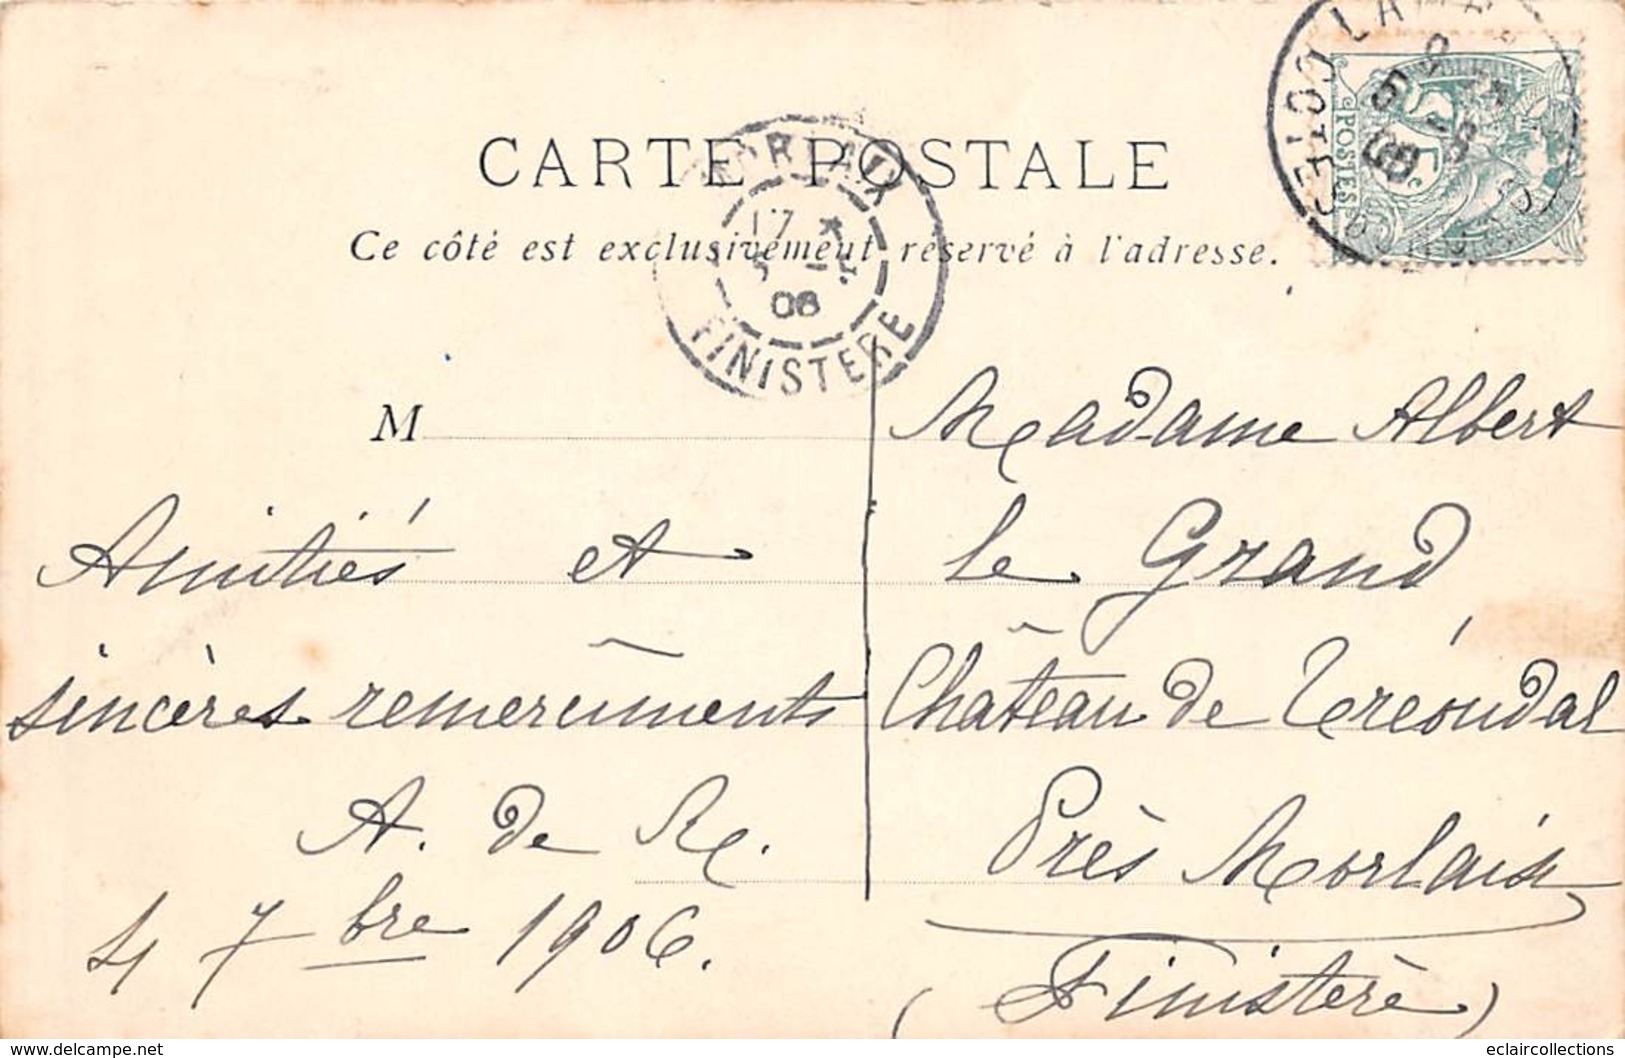 CARTE POSTALE
Ce côté est exclusivement réservé à l'adresse.
MORLAIX
17
5
06
FINISTERE
POSTES
5c
M
Amitiés et
sincères remerciments
A. de R.
4 7bre 1906.
Madame Albert
le Grand
Château de Tréoudal
Près Morlaix
(Finistère)
eclaircollections
www.delcampe.net